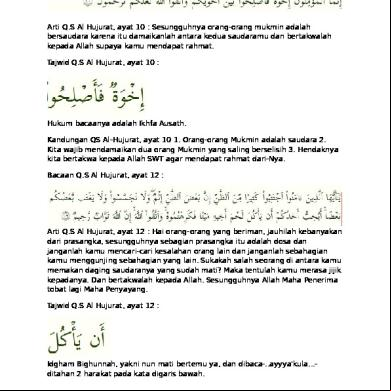 إِنَّمَا الْمُؤْمِنُونَ إِخْوَةٌ فَأَصْلِحُوا بَيْنَ أَخَوَيْكُمْ وَاتَّقُوا اللَّهَ لَعَلَّكُمْ تُرْحَمُونَ
Arti Q.S Al Hujurat, ayat 10 : Sesungguhnya orang-orang mukmin adalah
bersaudara karena itu damaikanlah antara kedua saudaramu dan bertakwalah
kepada Allah supaya kamu mendapat rahmat.
Tajwid Q.S Al Hujurat, ayat 10 :
إِخْوَةٌ فَأَصْلِحُوا
Hukum bacaanya adalah Ikhfa Ausath.
Kandungan QS Al-Hujurat, ayat 10 1. Orang-orang Mukmin adalah saudara 2.
Kita wajib mendamaikan dua orang Mukmin yang saling berselisih 3. Hendaknya
kita bertakwa kepada Allah SWT agar mendapat rahmat dari-Nya.
Bacaan Q.S Al Hujurat, ayat 12 :
يَٰٓأَيُّهَا الَّذِينَ ءَامَنُوا اجْتَنِبُوا كَثِيرًا مِّنَ الظَّنِّ إِنَّ بَعْضَ الظَّنِّ إِثْمٌ وَلَا تَجَسَّسُوا وَلَا يَغْتَب بَّعْضُكُم
بَعْضًا أَيُحِبُّ أَحَدُكُمْ أَن يَأْكُلَ لَحْمَ أَخِيهِ مَيْتًا فَكَرِهْتُمُوهُ وَاتَّقُوا اللَّهَ إِنَّ اللَّهَ تَوَّابٌ رَّحِيمٌ
Arti Q.S Al Hujurat, ayat 12 : Hai orang-orang yang beriman, jauhilah kebanyakan
dari prasangka, sesungguhnya sebagian prasangka itu adalah dosa dan
janganlah kamu mencari-cari kesalahan orang lain dan janganlah sebahagian
kamu menggunjing sebahagian yang lain. Sukakah salah seorang di antara kamu
memakan daging saudaranya yang sudah mati? Maka tentulah kamu merasa jijik
kepadanya. Dan bertakwalah kepada Allah. Sesungguhnya Allah Maha Penerima
tobat lagi Maha Penyayang.
Tajwid Q.S Al Hujurat, ayat 12 :
أَن يَأْكُلَ
Idgham Bighunnah, yakni nun mati bertemu ya, dan dibaca-..ayyya'kula...-
ditahan 2 harakat pada kata digaris bawah.